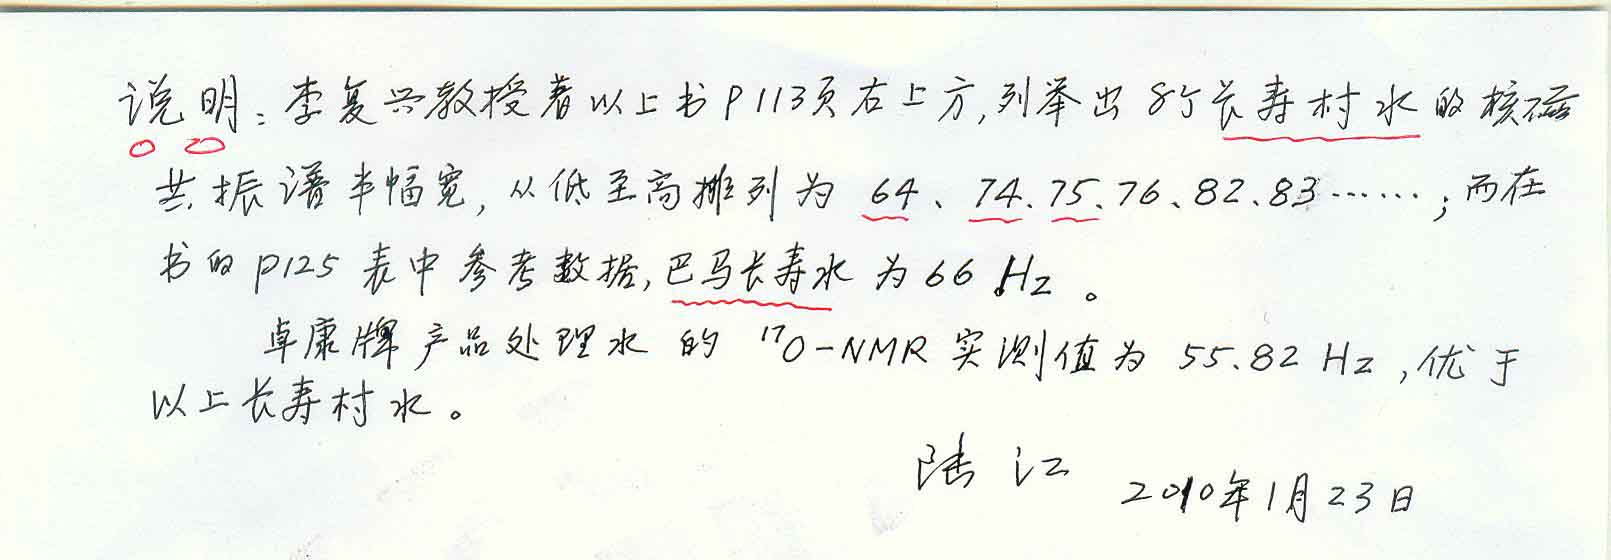 说明：李复兴教授着以上书P113页右上方,列举出8个长寿村水的核磁
共振谱半幅宽,从低至高排列为 64、74、75、76、82、83……;而在
书的P125表中参考数据,巴马长寿水为66Hz。
卓康牌产品处理水的 ¹⁷O-NMR实测值为55.82Hz,优于
以上长寿村水。
陆江 2010年1月23日